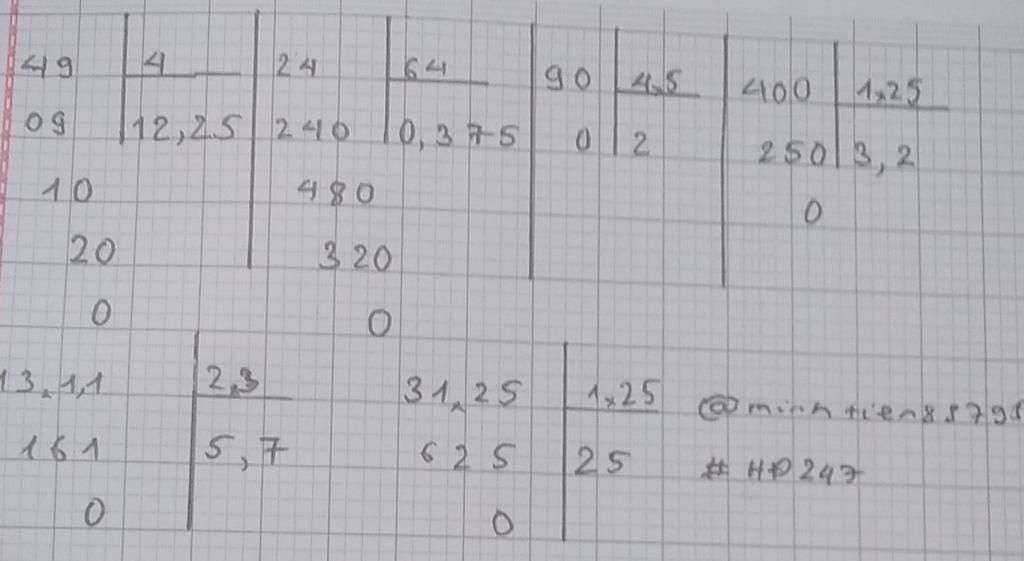 49 4 24 64 90 4,5 400 1,25
09 12,25 240 0,375 0 2 250 3,2
10 480 0
20 320
0 0
13,1,1 2,3 31,25 1,25
161 5,7 625 25 # HD247
0 0